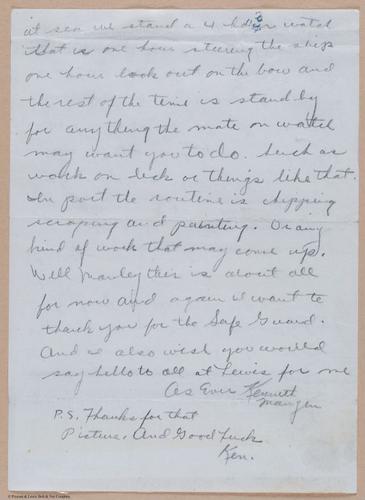 at sea we stand a 4 hour watch
that is one hour steering the ship
one hour look out on the bow and
the rest of the time is stand by
for anything the mate on watch
may want you to do. Such as
work on deck or things like that.
In port the routine is chipping
scraping and painting. Or any
kind of work that may come up.
Well Manley this is about all
for now and again I want to
thank you for the Safe Guard.
And I also wish you would
say hello to all at Lewis for me
As Ever Kenneth
P.S. Thanks for that
Picture. And Good Luck
Ken.